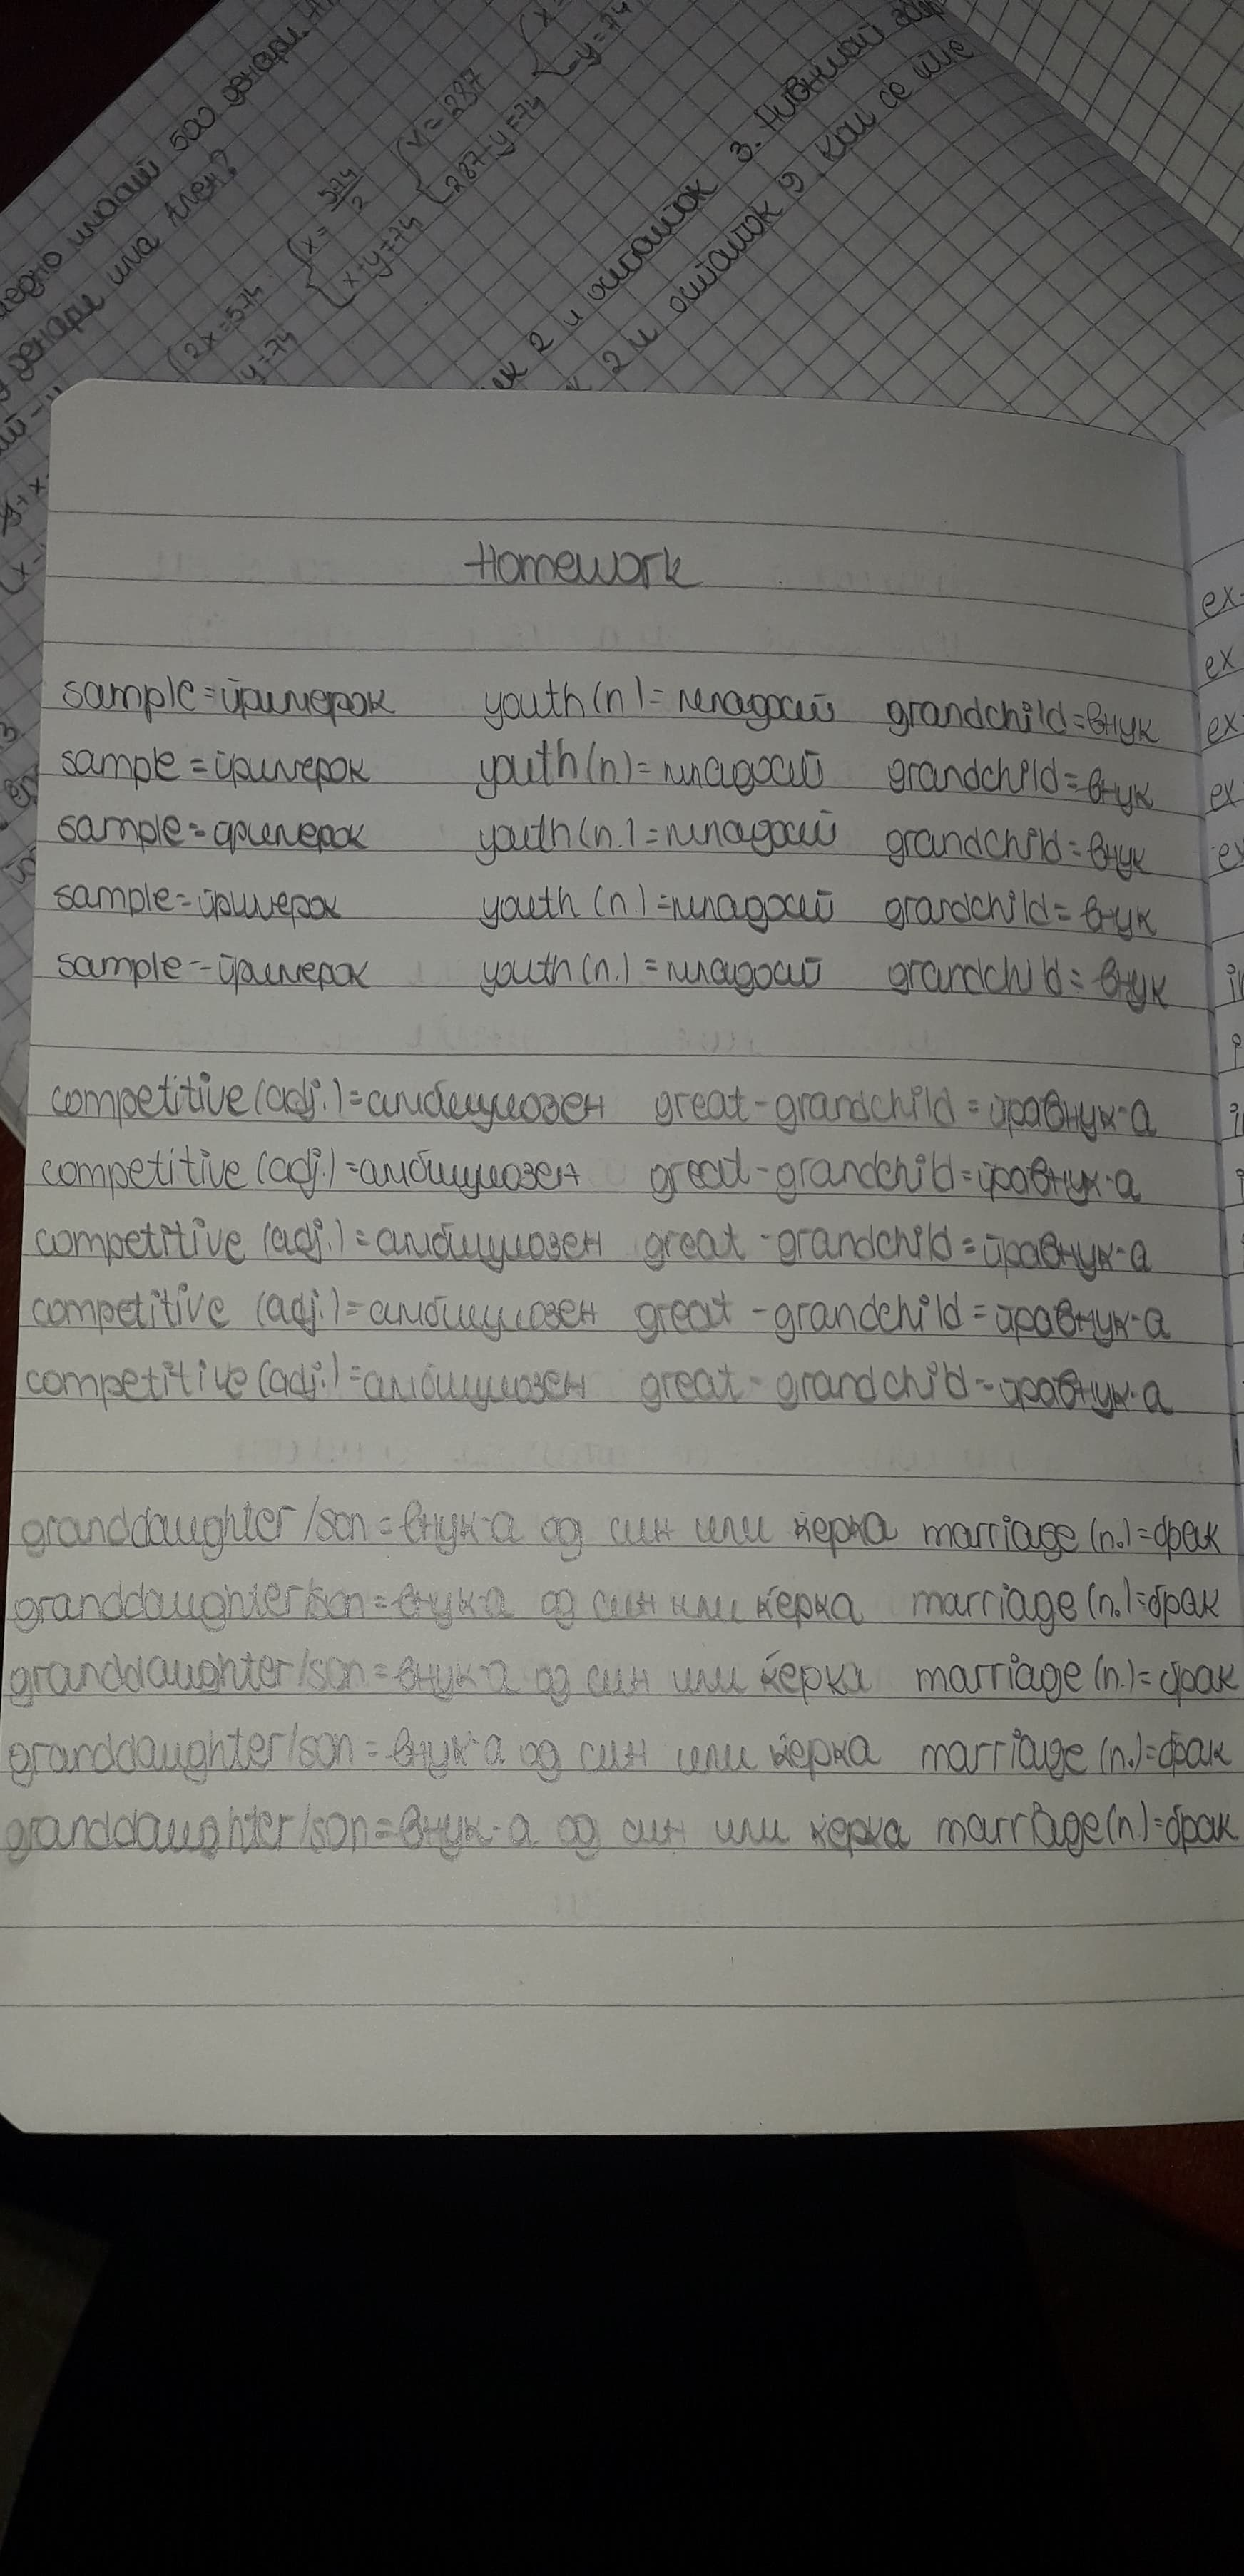 500 денари.
денари има Ален?
2x=574
y=74
x= 574/2
x-y=74
x=287
287-y=74
y=74
2 и остаток 3. Нивниот
2 и остаток 19 кои се тие
Homework
sample=примерок youth(n)=младост grandchild=внук
sample=примерок youth(n.)=младост grandchild=внук
sample=примерок youth(n.)=младост grandchild=внук
sample=примерок youth (n.)=младост grandchild=внук
sample=примерок youth(n.)=младост grandchild=внук
competitive(adj.)=амбициозен great-grandchild=правнук-а
competitive (adj.)=амбициозен great-grandchild=правнук-а
competitive (adj.)=амбициозен great-grandchild=правнук-а
competitive (adj.)=амбициозен great-grandchild=правнук-а
competitive(adj.)=амбициозен great-grandchild=правнук-а
granddaughter/son=внук-а од син или ќерка marriage(n.)=брак
granddaughter/son=внук-а од син или ќерка marriage(n.)=брак
granddaughter/son=внук-а од син или ќерка marriage(n.)=брак
granddaughter/son=внук-а од син или ќерка marriage(n.)=брак
granddaughter/son=внук-а од син или ќерка marriage(n)=брак
ex
ex
ex
ex